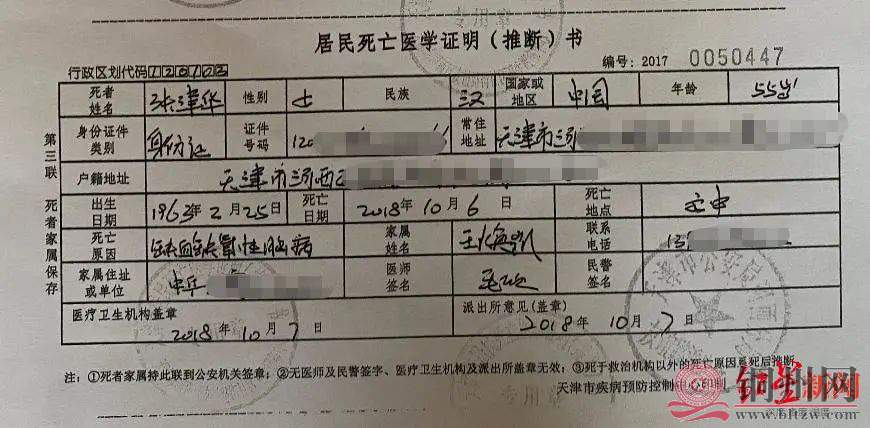 专用章
居民死亡医学证明（推断）书
编号：2017 0050447
行政区划代码120103
死者姓名 张津华 性别 女 民族 汉 国家或地区 中国 年龄 55岁
身份证件类别 身份证 证件号码 120 常住地址 天津市河
户籍地址 天津市河西
出生日期 1963年2月25日 死亡日期 2018年10月6日 死亡地点 家中
死亡原因 缺血缺氧性脑病 家属姓名 联系电话 13
家属住址或单位 医师签名 民警签名
医疗卫生机构盖章 派出所意见（盖章）
2018年10月7日 2018年10月7日
第三联 死者家属保存
天津市公安局
注：①死者家属持此联到公安机关签章；②无医师及民警签字、医疗卫生机构及派出所盖章无效；③死于救治机构以外的死亡原因系死后推断
天津市疾病预防控制中心印制
专用章
www.bltzw.com